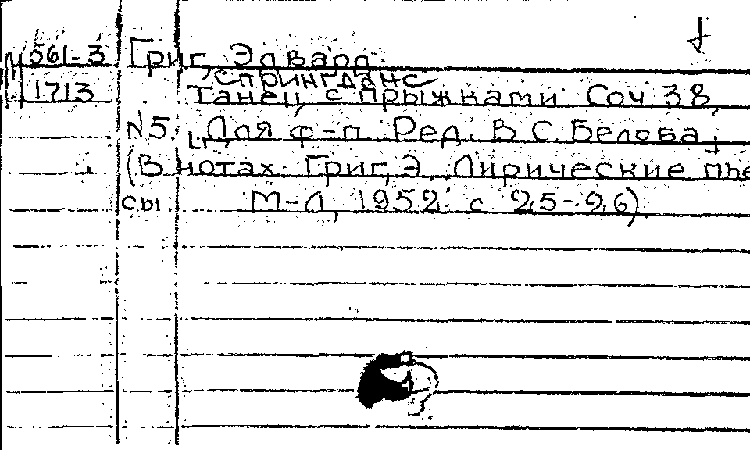 М 561-3 Григ, Эдвард.
Спрингданс
1713 Танец с прыжками Соч 38,
N5. Для ф-п. Ред. В С. Белова.
(В нотах: Григ, Э. Лирические пье
сы. М-Л, 1952. с 25-26).